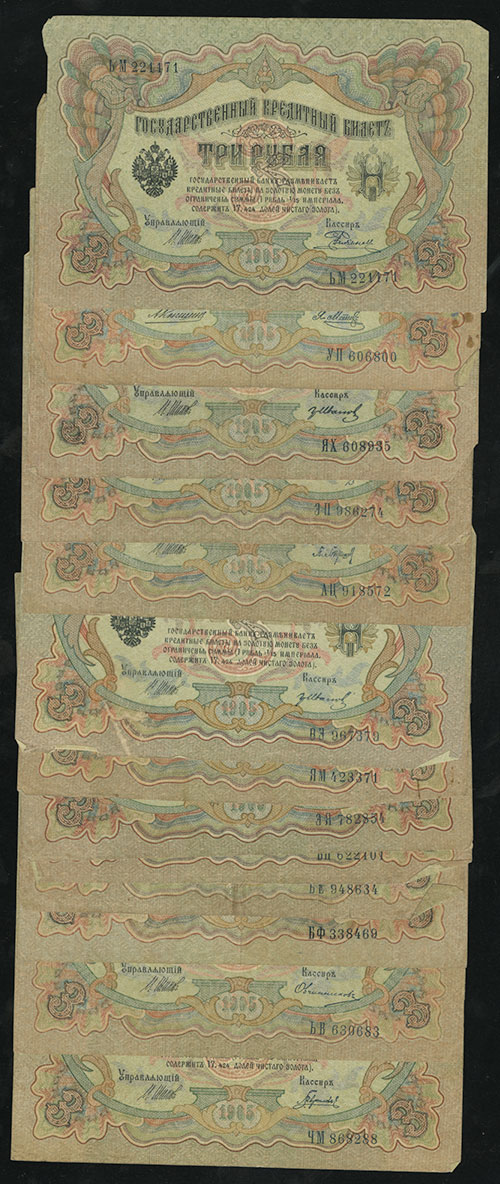 ЬМ 221171
ГОСУДАРСТВЕННЫЙ КРЕДИТНЫЙ БИЛЕТЪ
ТРИ РУБЛЯ
ГОСУДАРСТВЕННЫЙ БАНКЪ РАЗМѢНИВАЕТЪ
КРЕДИТНЫЕ БИЛЕТЫ НА ЗОЛОТУЮ МОНЕТУ БЕЗЪ
ОГРАНИЧЕНІЯ СУММЫ (1 РУБЛЬ = 1/15 ИМПЕРІАЛА,
СОДЕРЖИТЪ 17,424 ДОЛЕЙ ЧИСТАГО ЗОЛОТА).
Управляющій Кассиръ
1905
ЬМ 221171
1905
УП 606800
Управляющій Кассиръ
1905
ЯХ 608935
1905
ЗП 986274
1905
АЦ 918572
ГОСУДАРСТВЕННЫЙ БАНКЪ РАЗМѢНИВАЕТЪ
КРЕДИТНЫЕ БИЛЕТЫ НА ЗОЛОТУЮ МОНЕТУ БЕЗЪ
ОГРАНИЧЕНІЯ СУММЫ (1 РУБЛЬ = 1/15 ИМПЕРІАЛА,
СОДЕРЖИТЪ 17,424 ДОЛЕЙ ЧИСТАГО ЗОЛОТА).
Управляющій Кассиръ
1905
967379
ЯМ 423371
782834
622101
ЬВ 948634
БФ 338469
Управляющій Кассиръ
Овчинниковъ
1905
ЬВ 639683
СОДЕРЖИТЪ 17,424 ДОЛЕЙ ЧИСТАГО ЗОЛОТА).
Управляющій Кассиръ
1905
ЧМ 868288